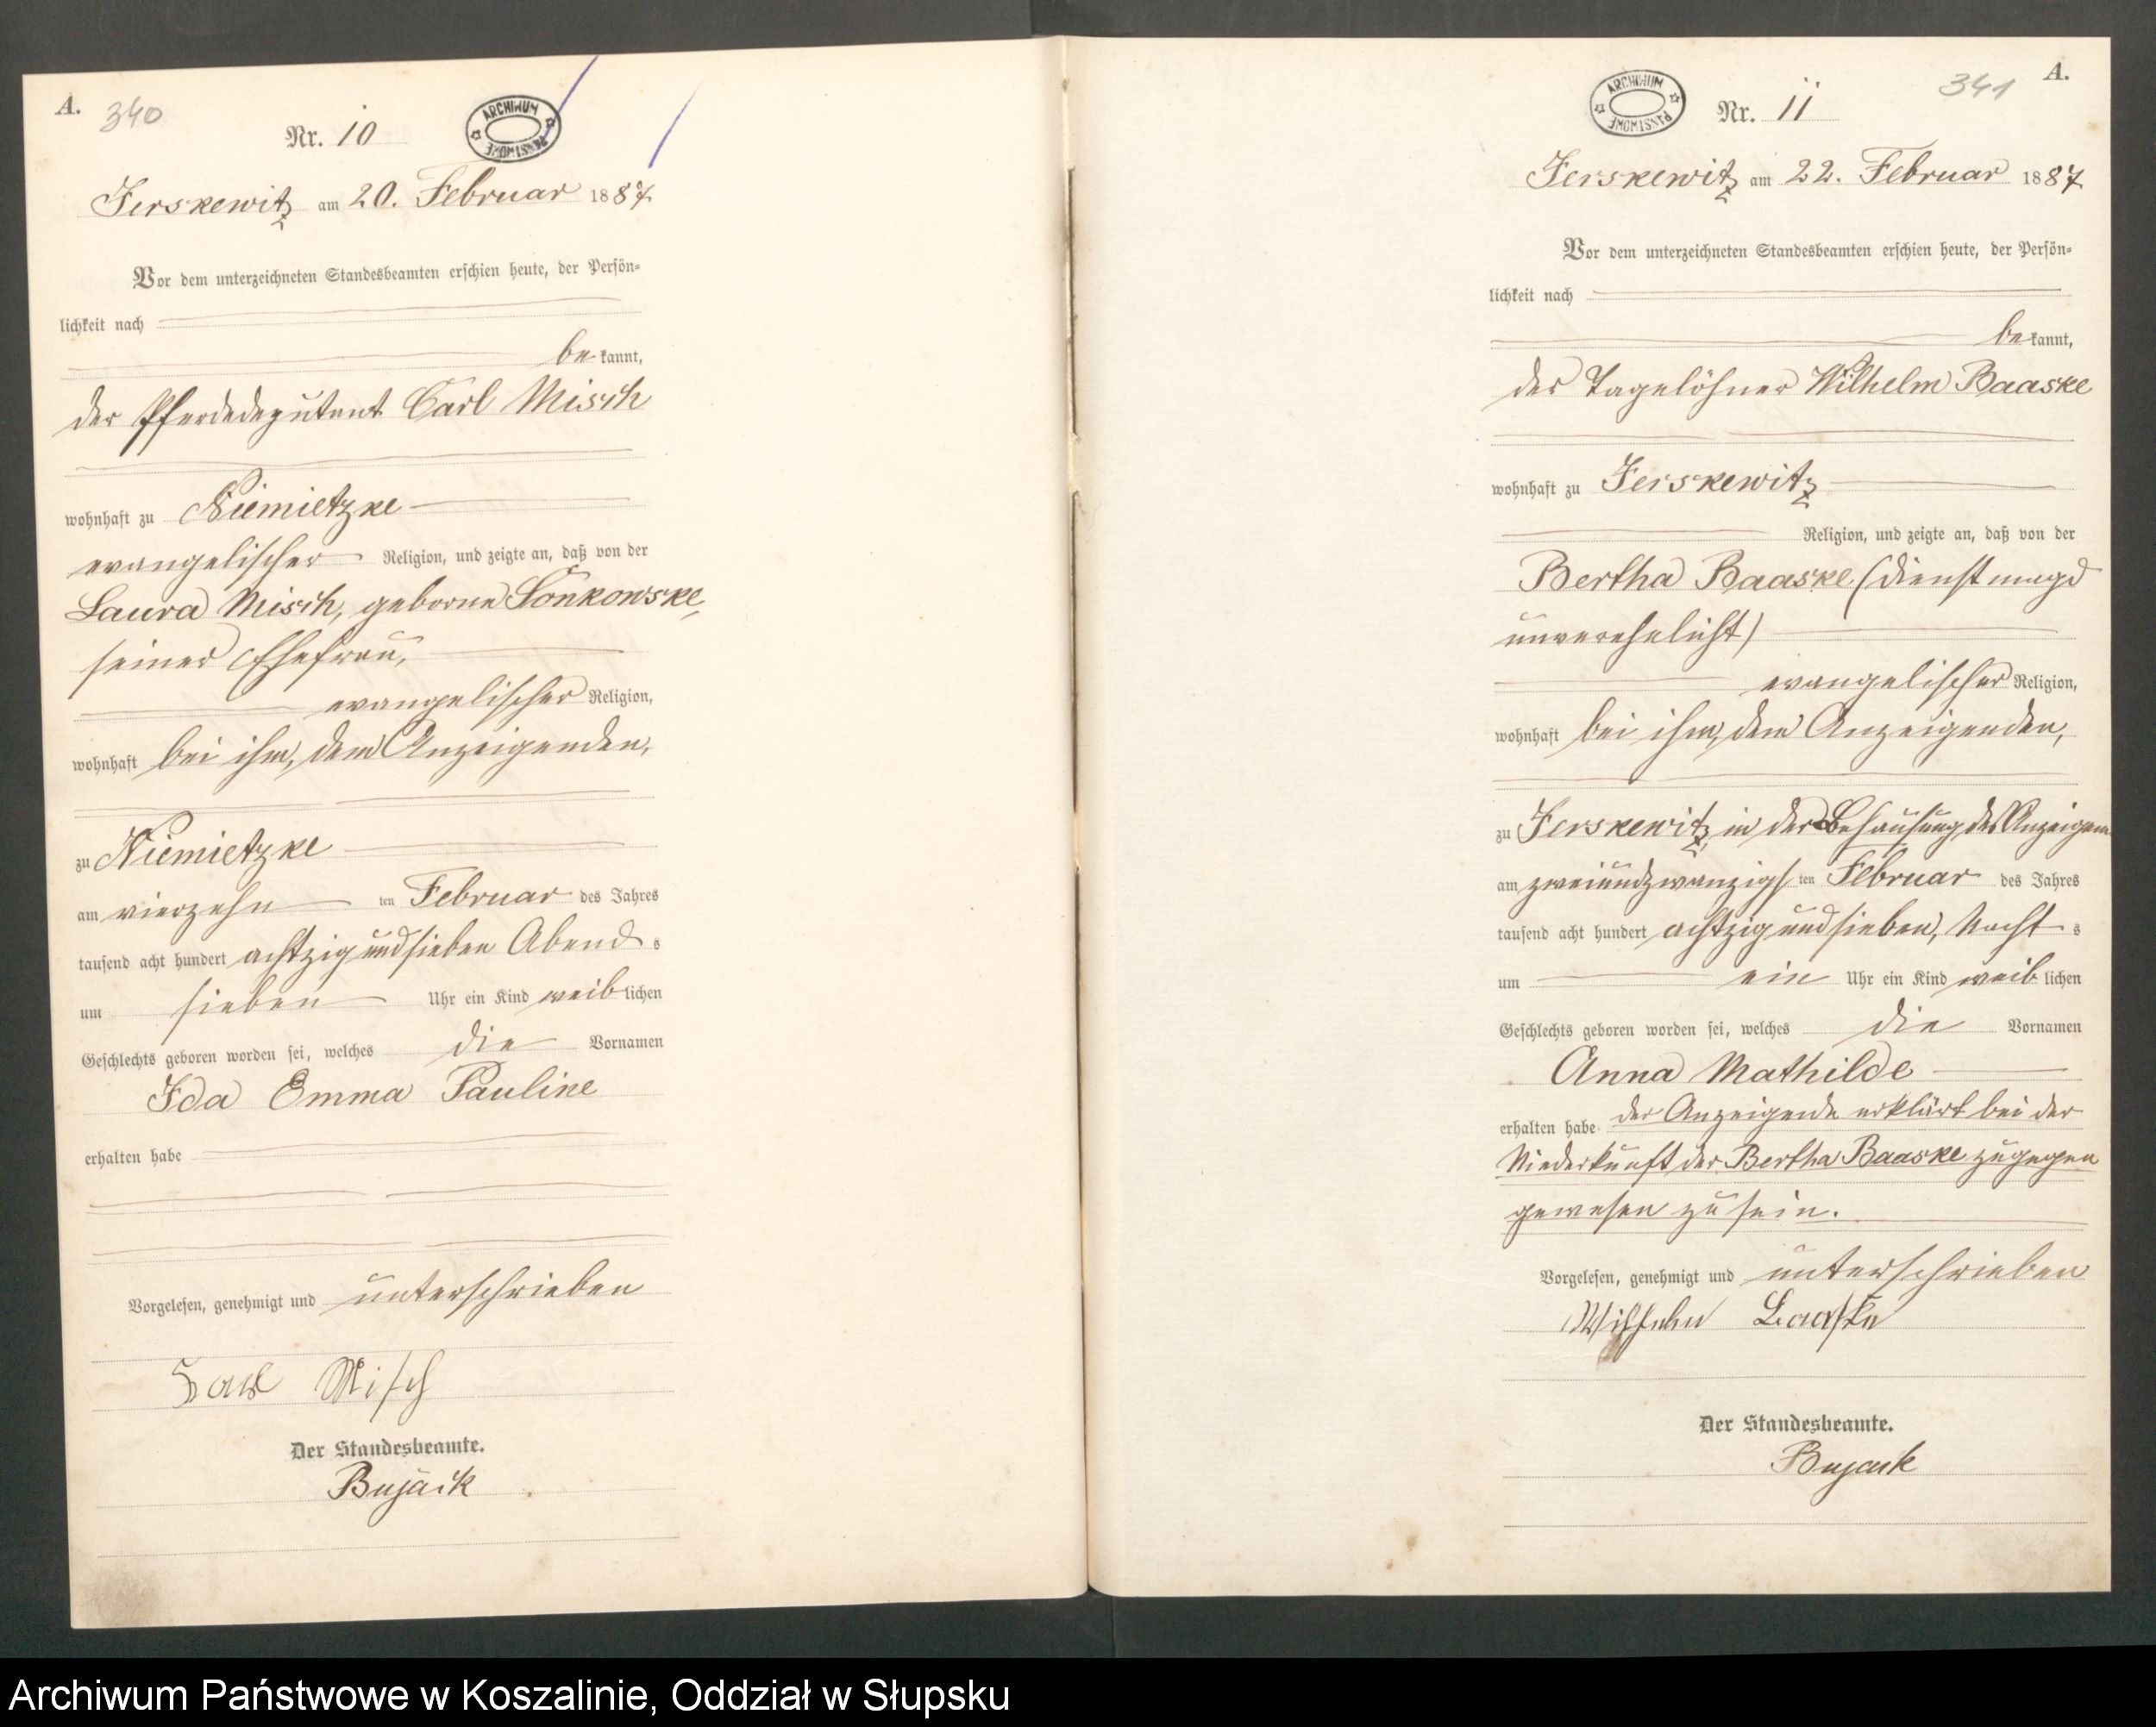 A. 340
ARCHIWUM PAŃSTWOWE
Nr. 10
Jerskewitz am 20. Februar 1887
Vor dem unterzeichneten Standesbeamten erschien heute, der Persön-
lichkeit nach
be kannt,
der Pferdedeputant Carl Misch
wohnhaft zu Niemietzke
evangelischer Religion, und zeigte an, daß von der
Laura Misch, geborne Lonkowske,
seiner Ehefrau,
evangelischer Religion,
wohnhaft bei ihm, dem Anzeigenden,
zu Niemietzke
am vierzehn ten Februar des Jahres
tausend acht hundert achtzig und sieben Abend s
um sieben Uhr ein Kind weib lichen
Geschlechts geboren worden sei, welches die Vornamen
Ida Emma Pauline
erhalten habe
Vorgelesen, genehmigt und unterschrieben
Carl Misch
Der Standesbeamte.
Bujack
341 A.
ARCHIWUM PAŃSTWOWE
Nr. 11
Jerskewitz am 22. Februar 1887
Vor dem unterzeichneten Standesbeamten erschien heute, der Persön-
lichkeit nach
be kannt,
der Tagelöhner Wilhelm Baaske
wohnhaft zu Jerskewitz
Religion, und zeigte an, daß von der
Bertha Baaske (Dienstmagd
unverehelicht)
evangelischer Religion,
wohnhaft bei ihm, dem Anzeigenden,
zu Jerskewitz, in der Behausung des Anzeigen
am zweiundzwanzigs ten Februar des Jahres
tausend acht hundert achtzig und sieben, Nacht s
um ein Uhr ein Kind weib lichen
Geschlechts geboren worden sei, welches die Vornamen
Anna Mathilde
erhalten habe. der Anzeigende erklärt bei der
Niederkunft der Bertha Baaske zugegen
gewesen zu sein.
Vorgelesen, genehmigt und unterschrieben
Wilhelm Baaske
Der Standesbeamte.
Bujack
Archiwum Państwowe w Koszalinie, Oddział w Słupsku